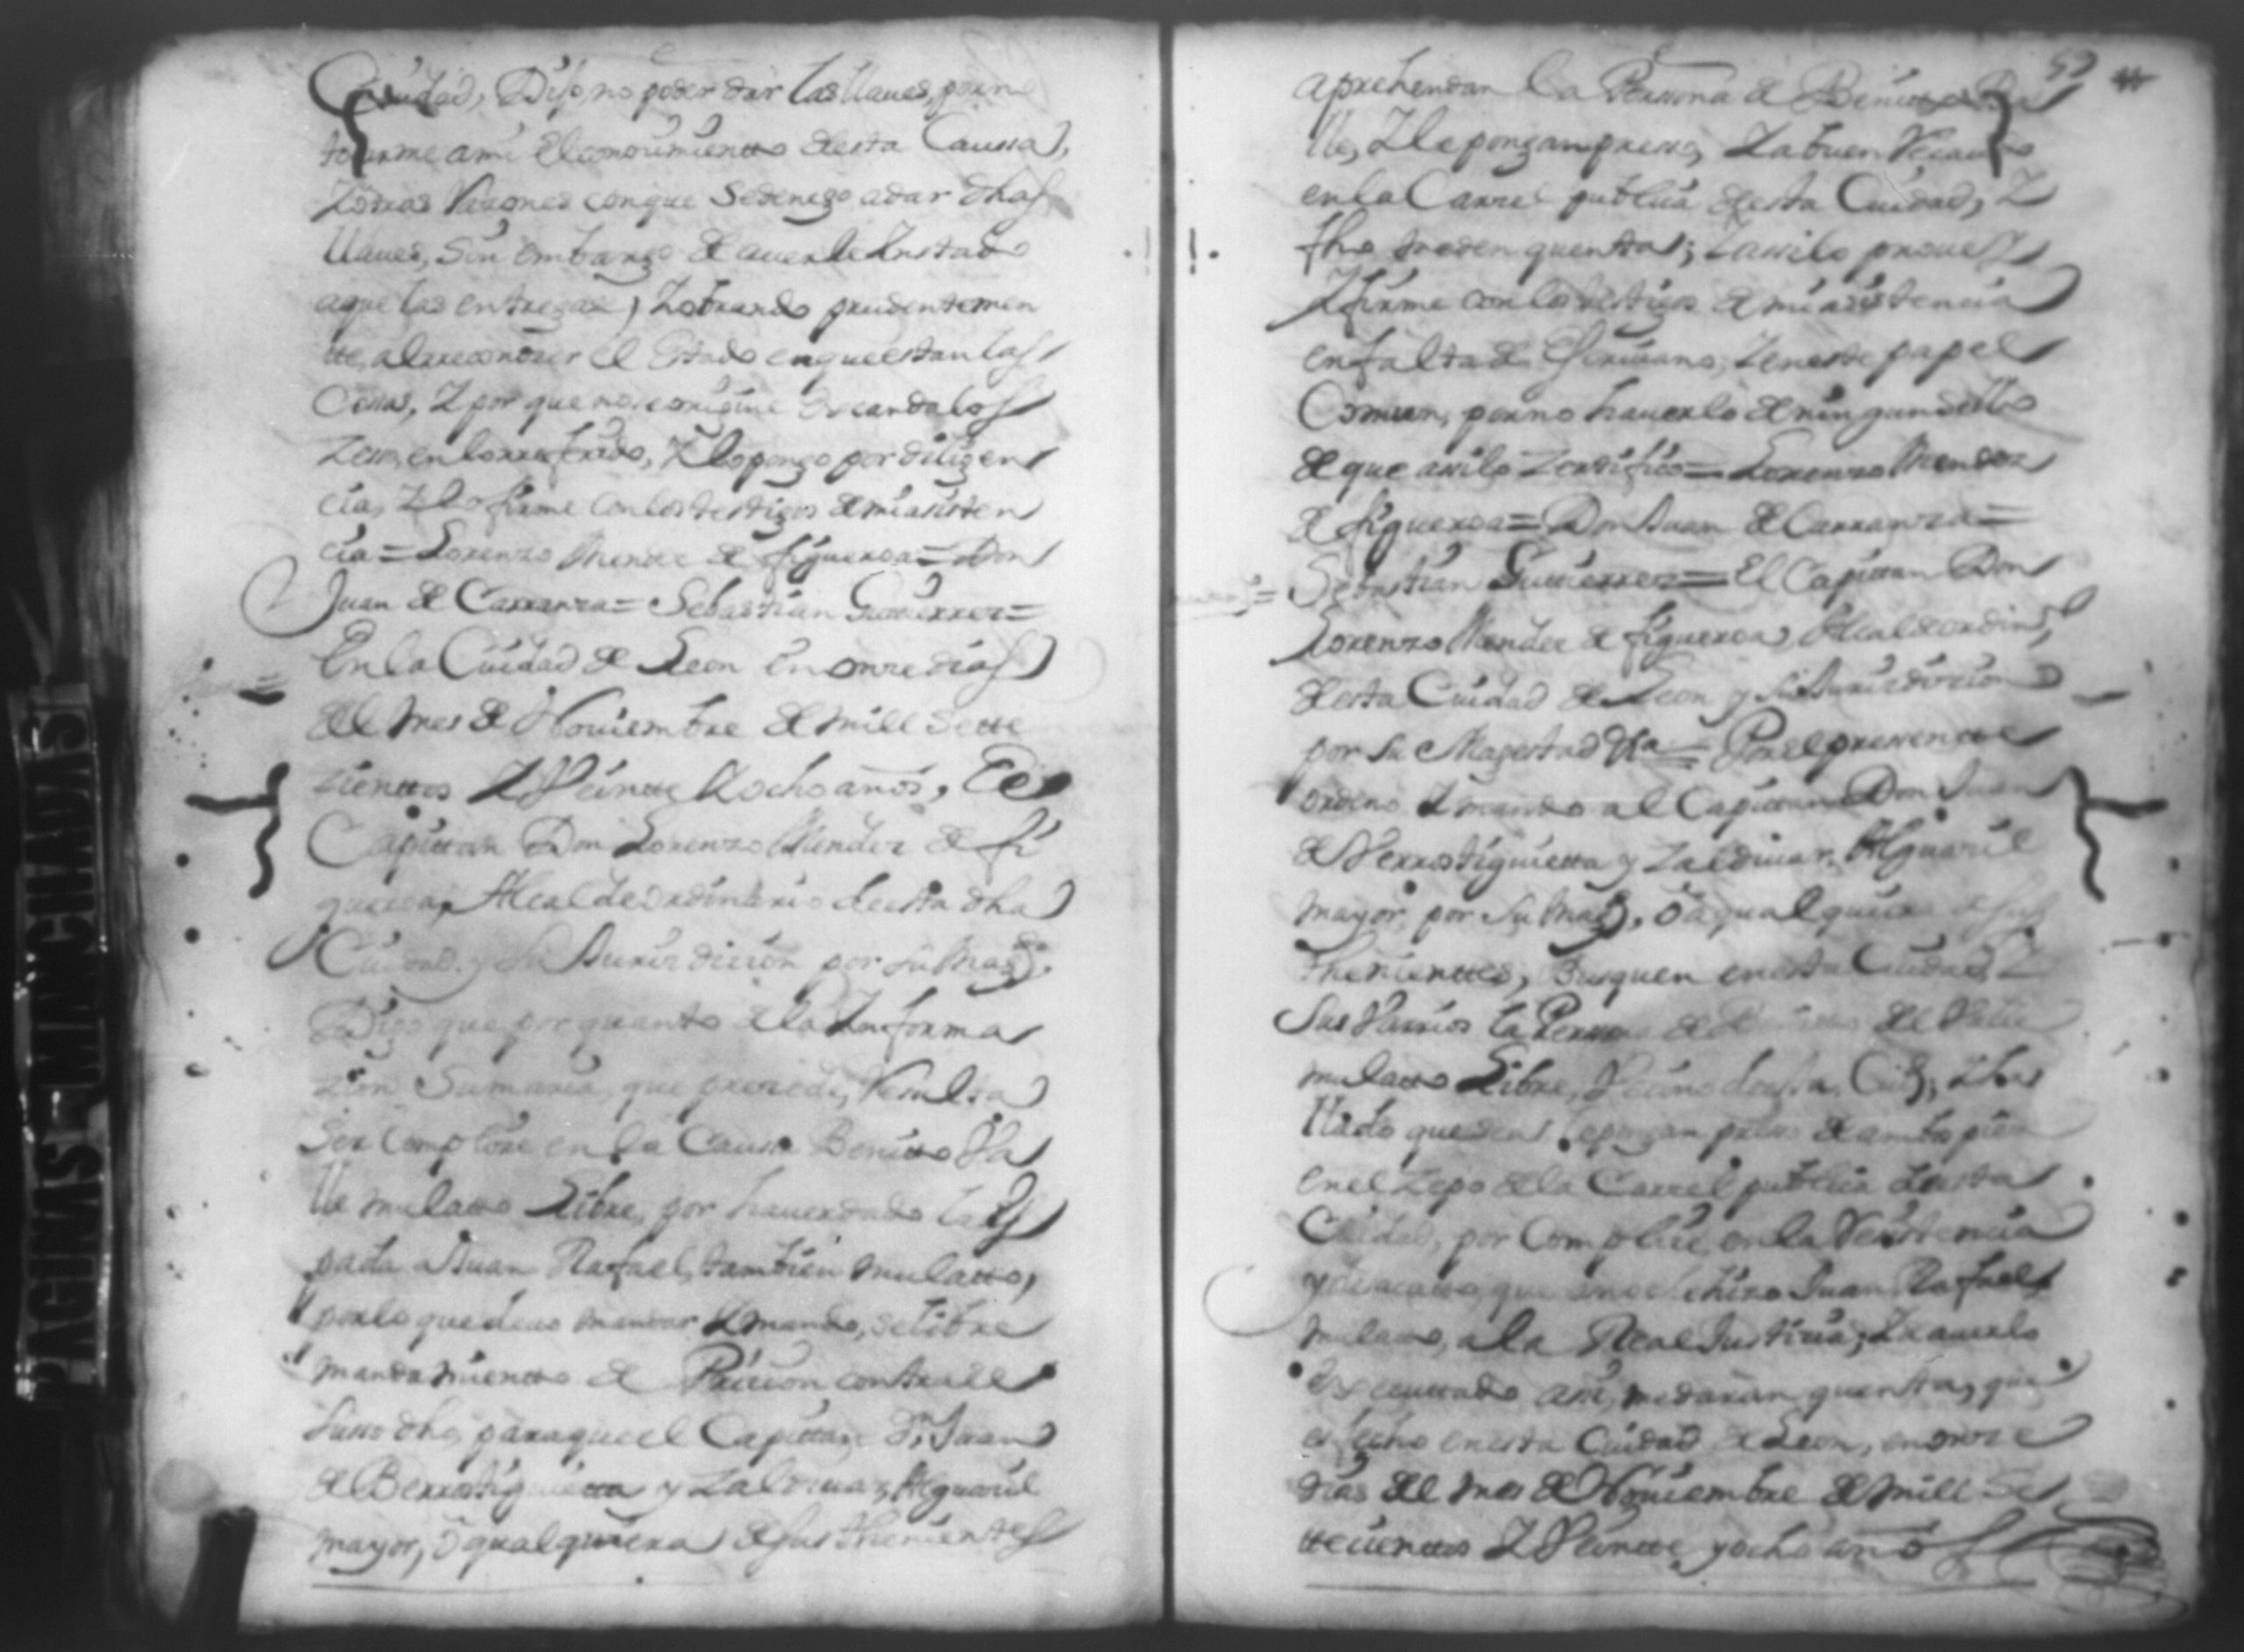 Ciudad, Dijo, no poder dar las llaues, por no
tocarme ami el conosimientto desta Caussa,
Zotras Razones conque se denego adar dhas
llaues, sin embargo de auerle Instado
aque las entregase, Zobrando prudentemen
tte, al rreconoser el Estado enque estan las
Cossas, Z por que no se origine escandalos
Zeso, en lo rreferido, Z lo pongo por diligen
cia, Z lo firme con los testigos de mi asisten
cia = Lorenzo Mendez de figueroa = Don
Juan de Carranza = Sebastian Gutierrez =
En la Ciudad de Leon en onze dias
del mes de Nouiembre de mill sette
zienttos Z Veintte Zocho años, El
Capittan Don Lorenzo Mendez de fi
gueroa, Alcalde ordinario desta dha
Ciudad. y su Jurisdicion por su Magd.
Digo que por quanto de la Informa
zion Sumaria, que precede, Resulta
ser complise en la Caussa Benitto Va
lle mulatto Libre, por hauer dado la es
pada a Juan Rafael, tambien mulatto,
por lo que deuo mandar Z mando, se libre
mandamientto de Pricion contra el
susso dho, para que el Capittan Dn. Juan
de Berrotiguietta y Zaldiuar, Alguacil
mayor, o qualquiera de sus thenientes
52
aprehendan la Perssona de Benitto Va
lle, Z le pongan presso, Za buen Recaudo
en la Carzel publica desta Ciudad, Z
fho me den quenta; Z assi lo prouey
Z firme con los testigos de mi asistencia
en falta de Escriuano, Z en este papel
Comun, por no hauerlo de ningun sello
de que assi lo Zertifico = Lorenzo Mendez
de figueroa = Don Juan de Carranza =
Sebastian Gutierrez = El Capittan Don
Lorenzo Mendez de figueroa, Alcalde ordino
desta Ciudad de Leon y su Jurisdicion
por su Magestad &a = Por el presentte
ordeno Z mando al Capittan Don Juan
de Verrostiguietta y Zaldiuar, Alguacil
mayor, por su Magd. o a qualquiera de sus
thenienttes, busquen en esta Ciudad, Z
sus Varrios la Perssona de Benitto de Valle
mulatto Libre, Vecino desta Ciud; Z ha
llado que sea le pongan preso de ambos pies
en el Zepo de la Carzel publica desta
Ciudad, por Complise en la Resistencia
y desacatto, que anoche hizo Juan Rafael
mulatto, a la Real Justicia; Z auerlo
Executtado assi, me daran quenta, que
es fecho en esta Ciudad de Leon, en onze
dias del mes de Nouiembre de mill se
ttecienttos Z Veintte y ocho años
PAGINAS MANCHADAS